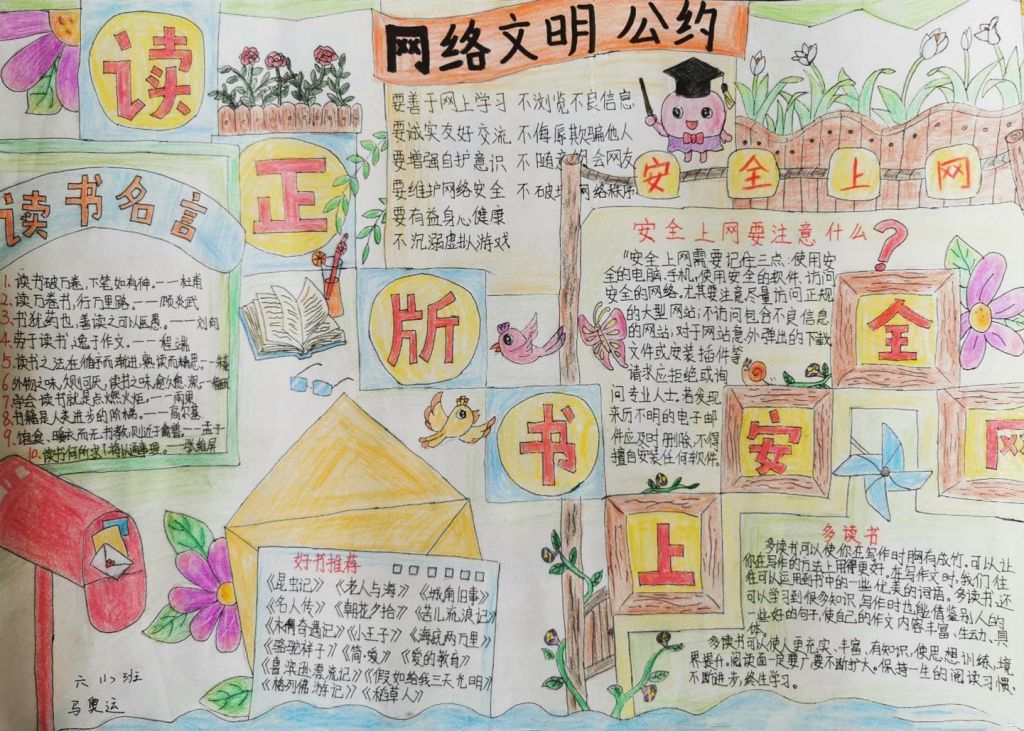 读
正
版
书
网络文明公约
要善于网上学习 不浏览不良信息
要诚实友好交流 不侮辱欺骗他人
要增强自护意识 不随意约会网友
要维护网络安全 不破坏网络秩序
要有益身心健康
不沉溺虚拟游戏
读书名言
1. 读书破万卷，下笔如有神。——杜甫
2. 读万卷书，行万里路。——顾炎武
3. 书犹药也，善读之可以医愚。——刘向
4. 劳于读书，逸于作文。——程端
5. 读书之法，在循序而渐进，熟读而精思。
6. 外物之味，久则可厌，读书之味，愈久愈深。
7. 学会读书就是点燃火炬。——雨果
8. 书籍是人类进步的阶梯。——高尔基
9. 饱食、暖衣、而无书教，则近于禽兽。——孟子
10. 读书何所求？将以通事理。——张维屏
安全上网
安全上网要注意什么？
"安全上网需要记住三点：使用安
全的电脑、手机，使用安全的软件，访问
安全的网络。尤其要注意尽量访问正规
的大型网站；不访问包含不良信息
的网站；对于网站意外弹出的下载
文件或安装插件等
请求应拒绝或询
问专业人士；若发现
来历不明的电子邮
件应及时删除，不得
擅自安装任何软件。
全
安
网
上
好书推荐
《昆虫记》《老人与海》《城南旧事》
《名人传》《朝花夕拾》《苦儿流浪记》
《木偶奇遇记》《小王子》《海底两万里》
《骆驼祥子》《简·爱》《爱的教育》
《鲁滨逊漂流记》《假如给我三天光明》
《格列佛游记》《稻草人》
多读书
多读书可以使你在写作时胸有成竹，可以让
你在写作的方法上用得更好，在写作文时，我们往
往可以运用到书中的一些优美的词语。多读书，还
可以学习到很多知识，写作时也能借鉴别人的
一些好的句子，使自己的作文内容丰富、生动、具
体。
多读书可以使人更充实、丰富、有知识，使思想训练、境
界提升。阅读面一定要广，要不断扩大。保持一生的阅读习惯，
不断进步，终生学习。
六（1）班
马奥运